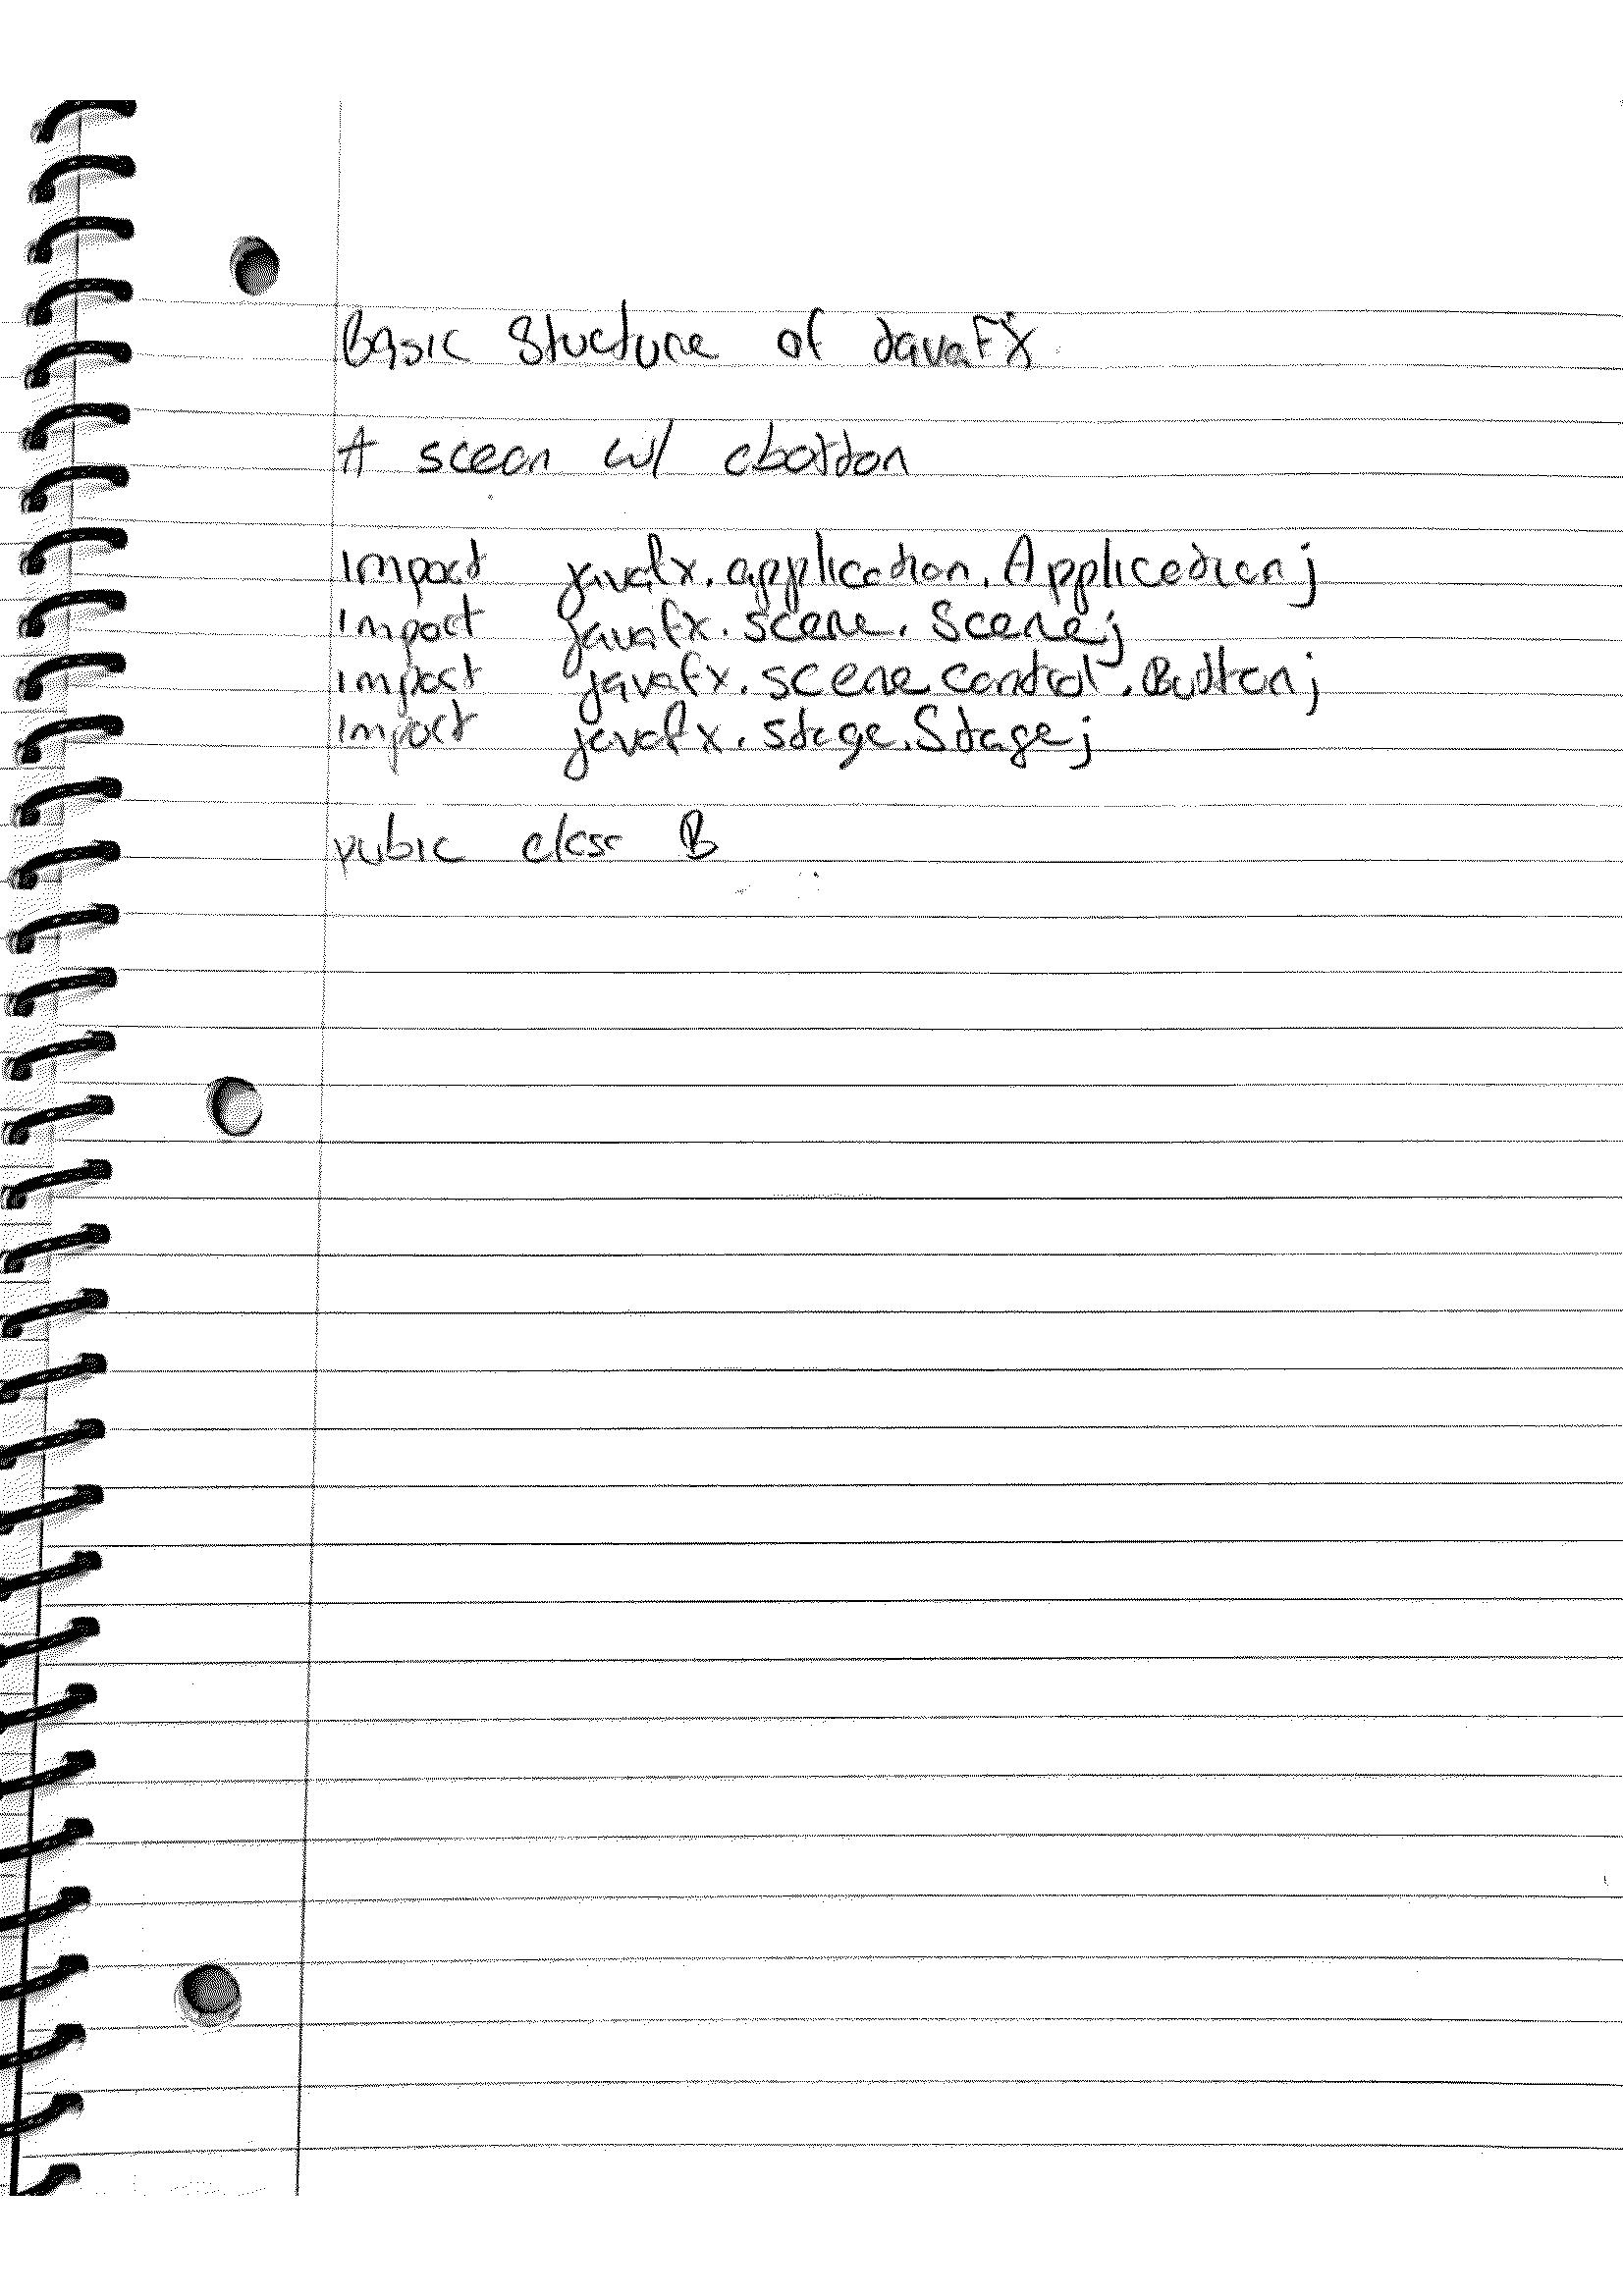 Basic Stucture of JavaFX
A scean w/ a botton
import javafx.application.Application;
import javafx.scene.Scene;
import javafx.scene.control.Button;
import javafx.stage.Stage;
pubic class B